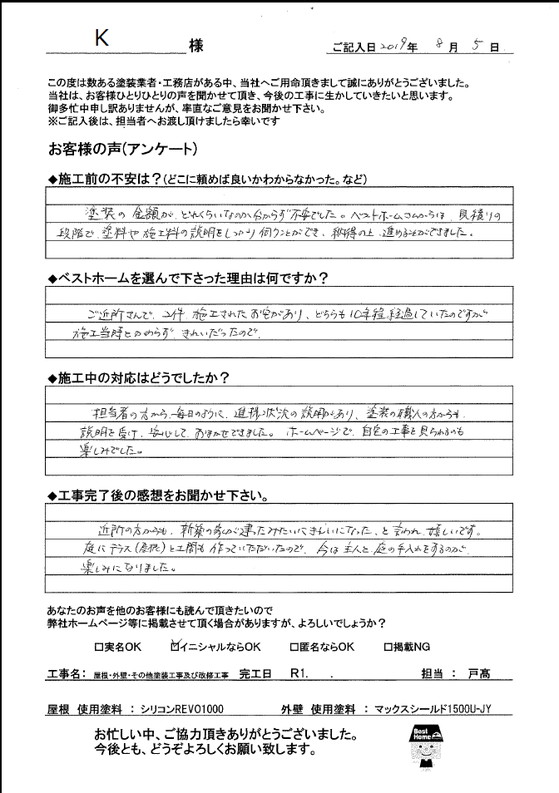 K 様
ご記入日 2019年 8月 5日
この度は数ある塗装業者・工務店がある中、当社へご用命頂きまして誠にありがとうございました。
当社は、お客様ひとりひとりの声を聞かせて頂き、今後の工事に生かしていきたいと思います。
御多忙中申し訳ありませんが、率直なご意見をお聞かせ下さい。
※ご記入後は、担当者へお渡し頂けましたら幸いです
お客様の声(アンケート)
◆施工前の不安は?(どこに頼めば良いかわからなかった。など)
塗装の金額が、どれくらいなのか分からず不安でした。ベストホームさんからは、見積りの
段階で、塗料や施工料の説明をしっかり伺うことができ、納得の上、進めることができました。
◆ベストホームを選んで下さった理由は何ですか?
ご近所さんで、2件、施工されたお宅があり、どちらも10年程経過していたのですが
施工当時とかわらず、きれいだったので、
◆施工中の対応はどうでしたか?
担当者の方から毎日のように、進捗状況の説明があり、塗装の職人の方からも
説明を受け、安心して、おまかせできました。ホームページで、自宅の工事を見られるのも
楽しみでした。
◆工事完了後の感想をお聞かせ下さい。
近所の方からも、新築の家が建ったみたいにきれいになった、と言われ、嬉しいです。
庭にテラス(屋根)と土間も作っていただいたので、今は主人と庭の手入れをするのが、
楽しみになりました。
あなたのお声を他のお客様にも読んで頂きたいので
弊社ホームページ等に掲載させて頂く場合がありますが、よろしいでしょうか?
□実名OK ☑イニシャルならOK □匿名ならOK □掲載NG
工事名: 屋根・外壁・その他塗装工事及び改修工事 完工日 R1. . 担当 : 戸髙
屋根 使用塗料 : シリコンREVO1000 外壁 使用塗料 : マックスシールド1500U-JY
お忙しい中、ご協力頂きありがとうございました。
今後とも、どうぞよろしくお願い致します。
Best Home